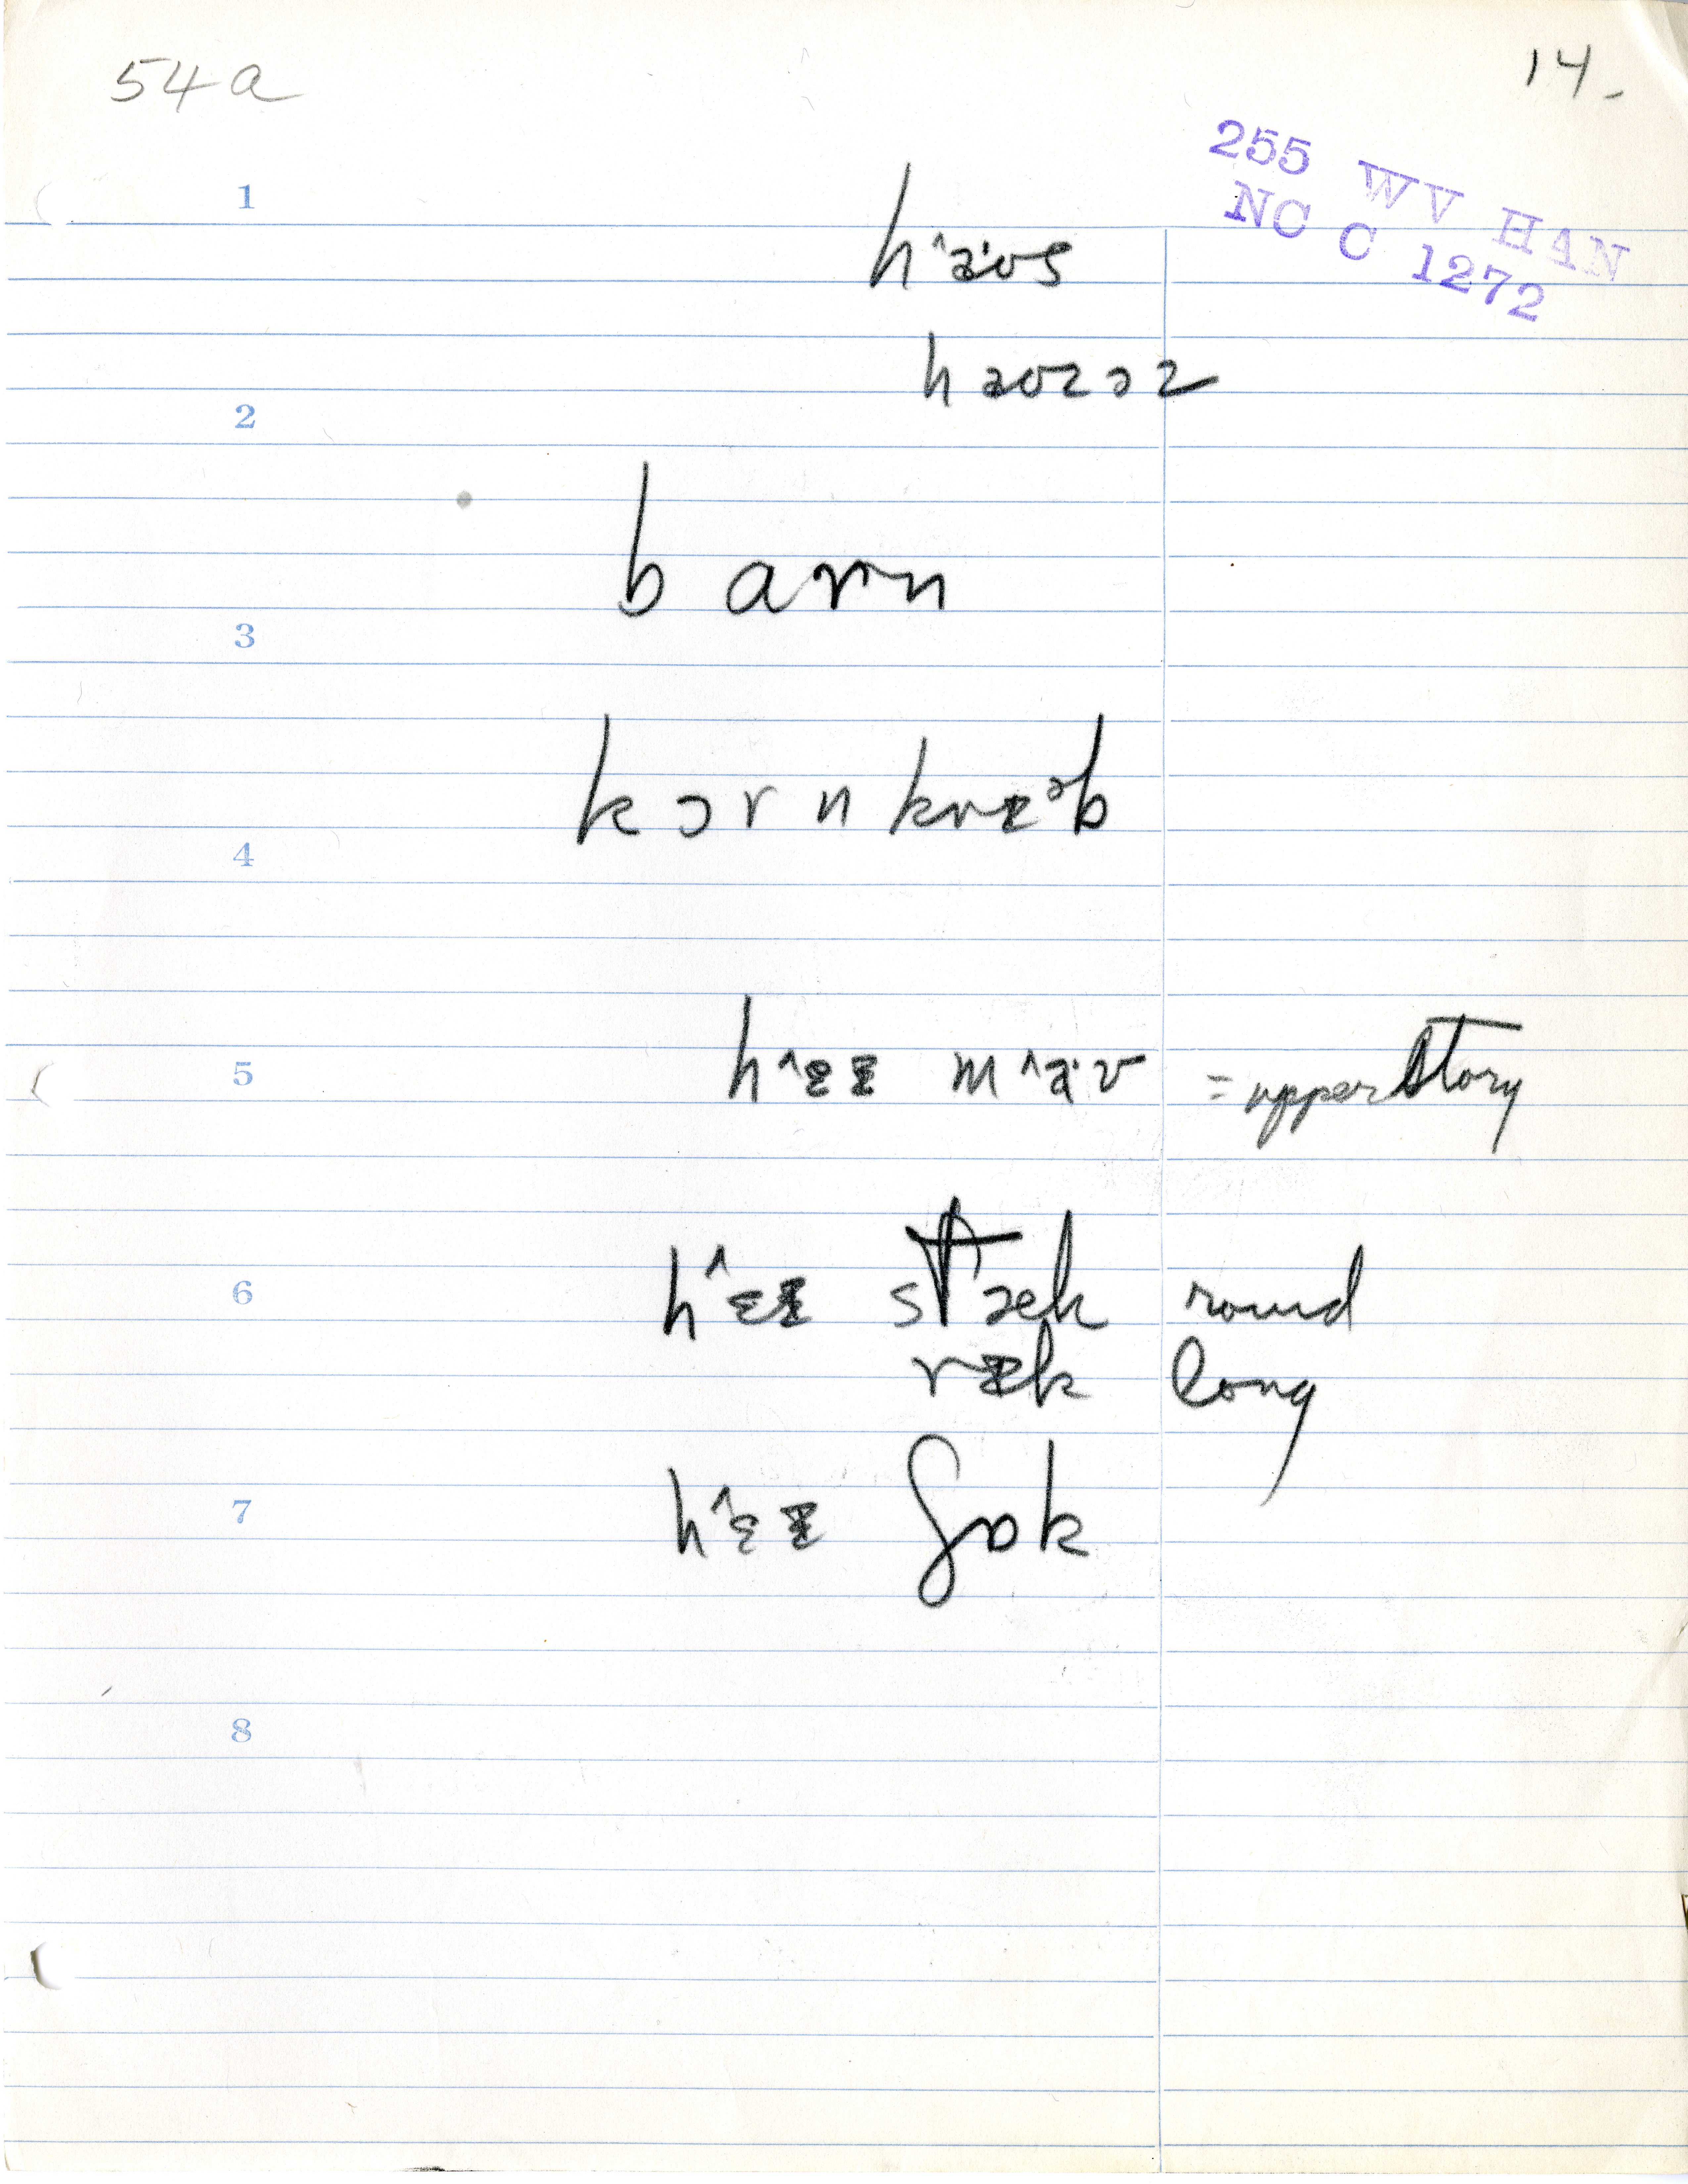 54a
14.
255 WV HAN
NC C 1272
1
h^a·ʊs
haʊzəz
2
barn
3
kɔrnkrɪᵊb
4
5
h^ɛɪ m^a·ʊ = upper story
6
h^ɛɪ stæk round
rɪk long
7
h^ɛɪ ʃɒk
8